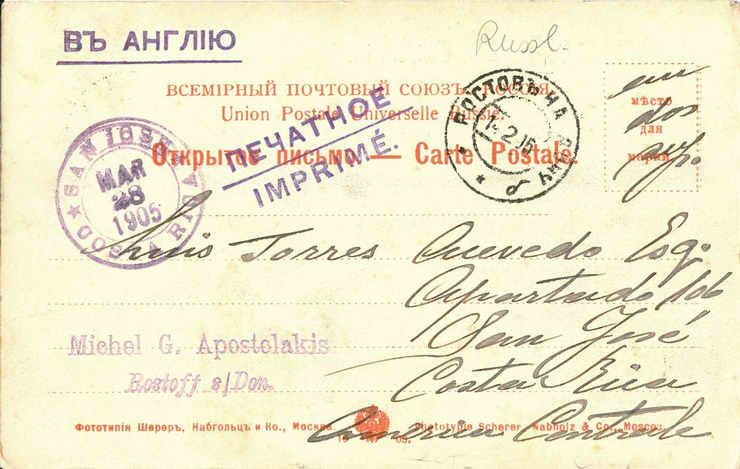 ВЪ АНГЛІЮ
Russl.
ВСЕМІРНЫЙ ПОЧТОВЫЙ СОЮЗЪ. РОССІЯ.
Union Postale Universelle Russie.
ПЕЧАТНОЕ
IMPRIMÉ.
Открытое письмо. — Carte Postale.
мѣсто
для
марки
au
dos
РОСТОВЪ НА ДОНУ
SAN JOSE
MAR
28
1905
COSTA RICA
Luis Torres Quevedo Esq.
Apartado 106
San José
Costa Rica
America Centrale
Michel G. Apostolakis
Rostoff s/Don.
Фототипія Шереръ, Набгольцъ и Ко., Москва.
Phototypie Scherer, Nabholz & Co., Moscou.